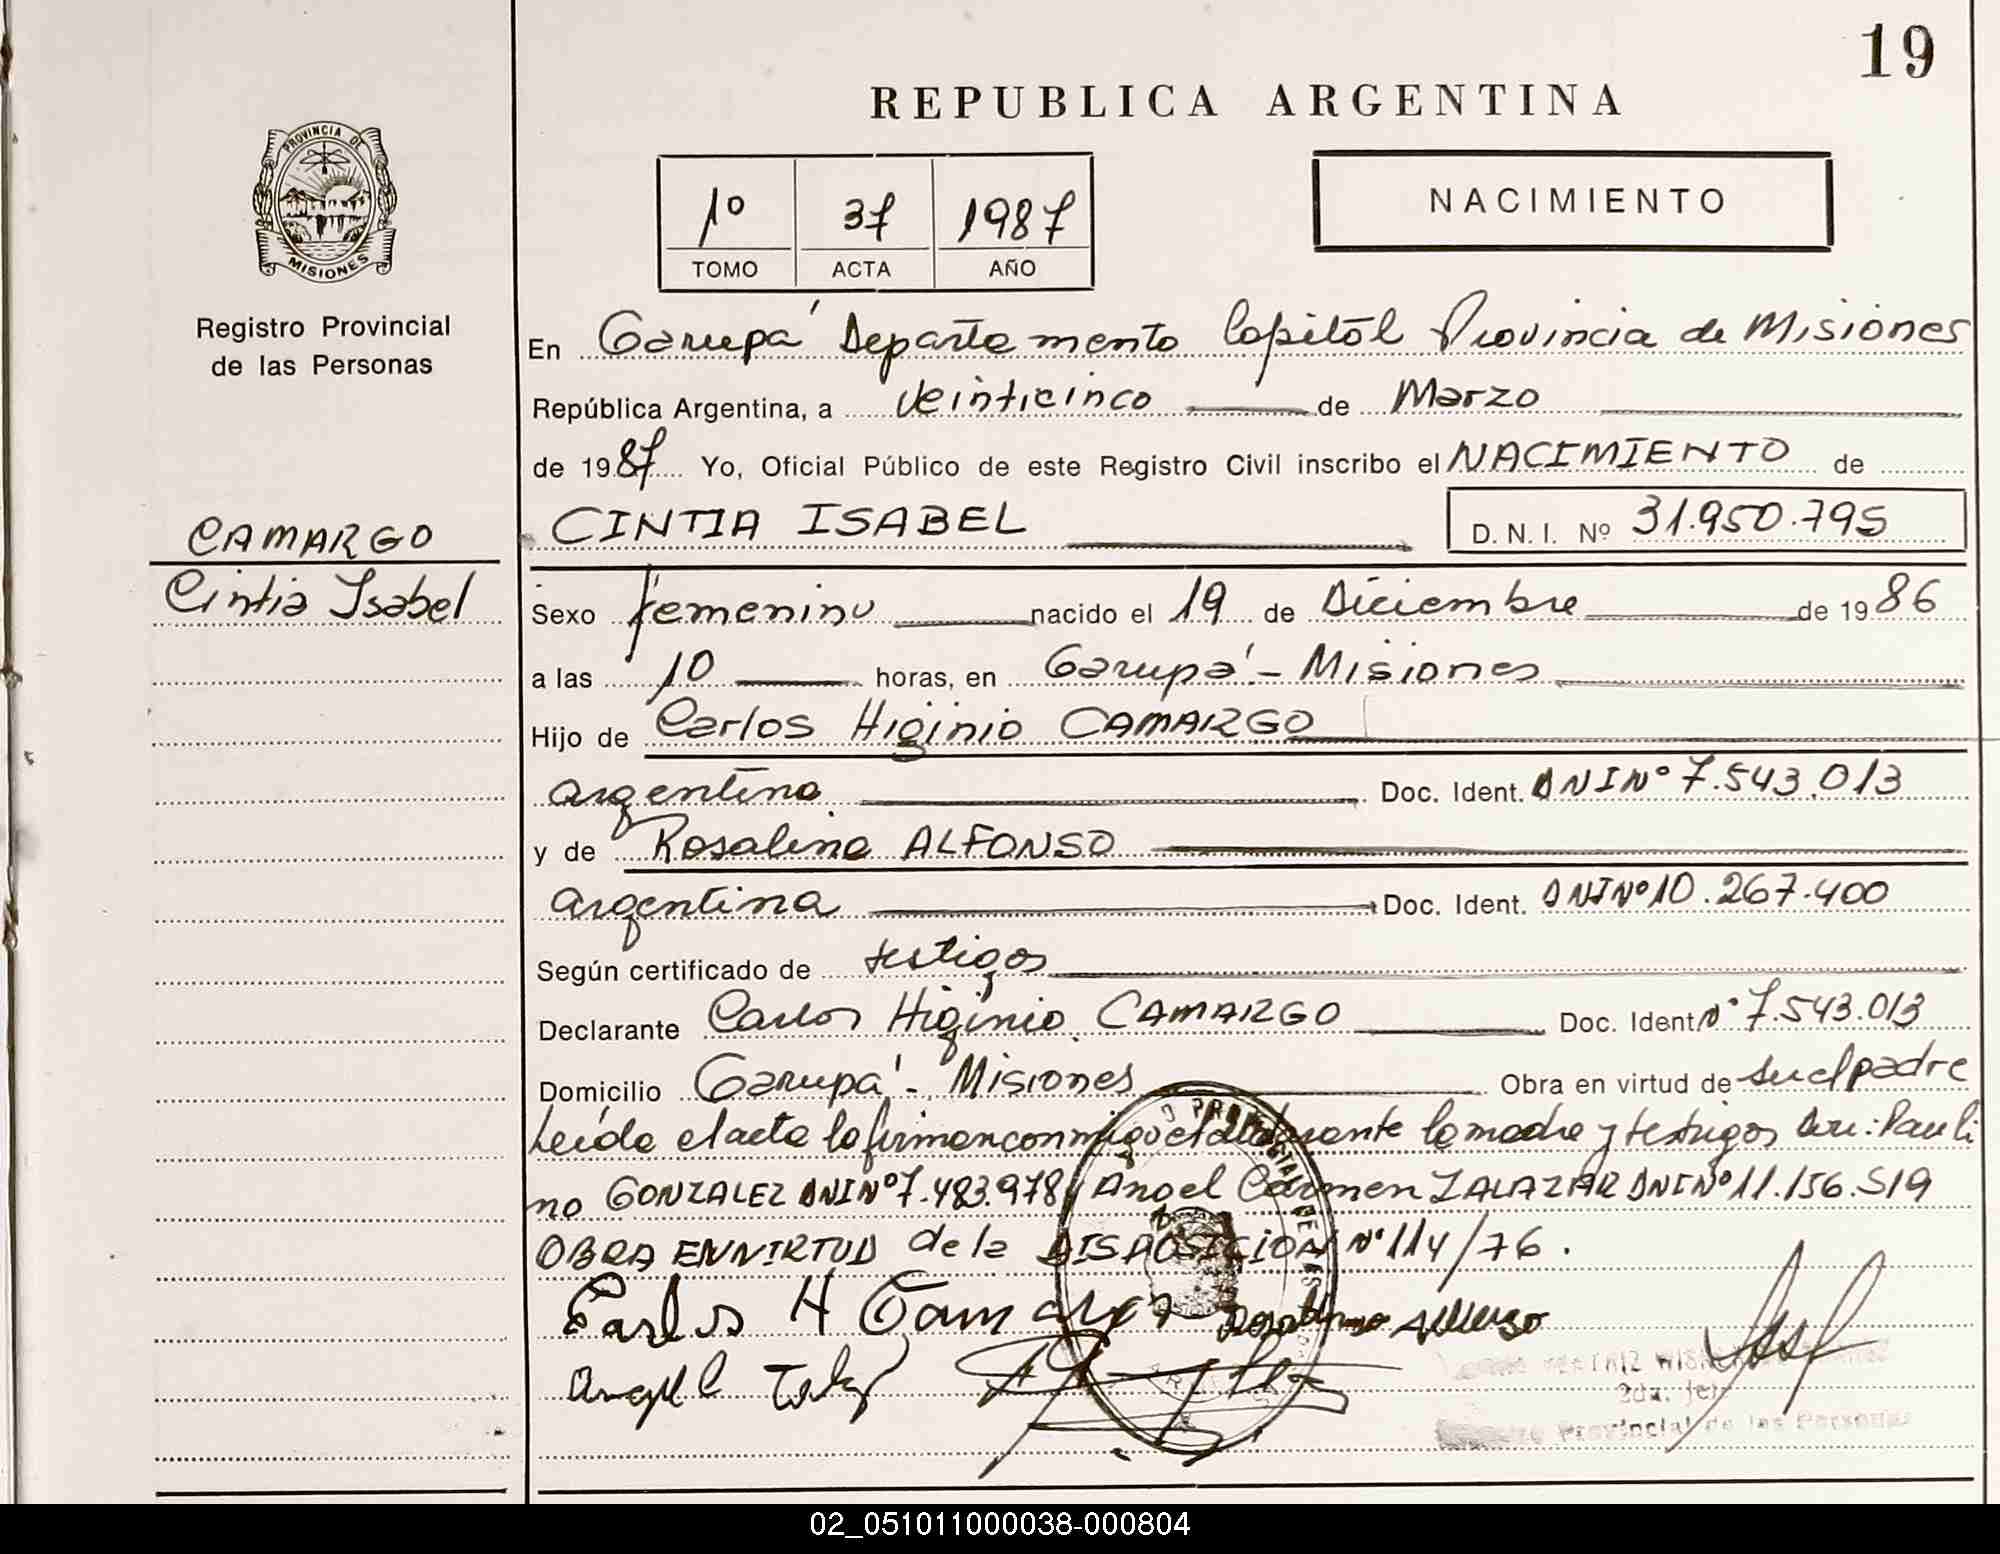 19
REPUBLICA ARGENTINA
PROVINCIA DE
MISIONES
Registro Provincial
de las Personas
1º 37 1987
TOMO ACTA AÑO
NACIMIENTO
En Garupá Departamento Capital Provincia de Misiones
República Argentina, a veinticinco de Marzo
de 1987 Yo, Oficial Público de este Registro Civil inscribo el NACIMIENTO de
CAMARGO
Cintia Isabel
CINTIA ISABEL D. N. I. Nº 31.950.795
Sexo femenino nacido el 19 de Diciembre de 1986
a las 10 horas, en Garupá - Misiones
Hijo de Carlos Higinio CAMARGO
argentino Doc. Ident. DNI Nº 7.543.013
y de Rosalina ALFONSO
argentina Doc. Ident. DNI Nº 10.267.400
Según certificado de testigos
Declarante Carlos Higinio CAMARGO Doc. Ident. Nº 7.543.013
Domicilio Garupá - Misiones Obra en virtud de su el padre
Leída el acta la firman conmigo el declarante la madre y testigos Pauli
no GONZALEZ DNI Nº 7.483.978 y Angel Carmen ZALAZAR DNI Nº 11.156.519
OBRA EN VIRTUD de la DISPOSICION Nº 114/76.
Carlos H Camargo Rosalina Alfonso
Angel
2da. Jefe
Provincial de las Personas
02_051011000038-000804